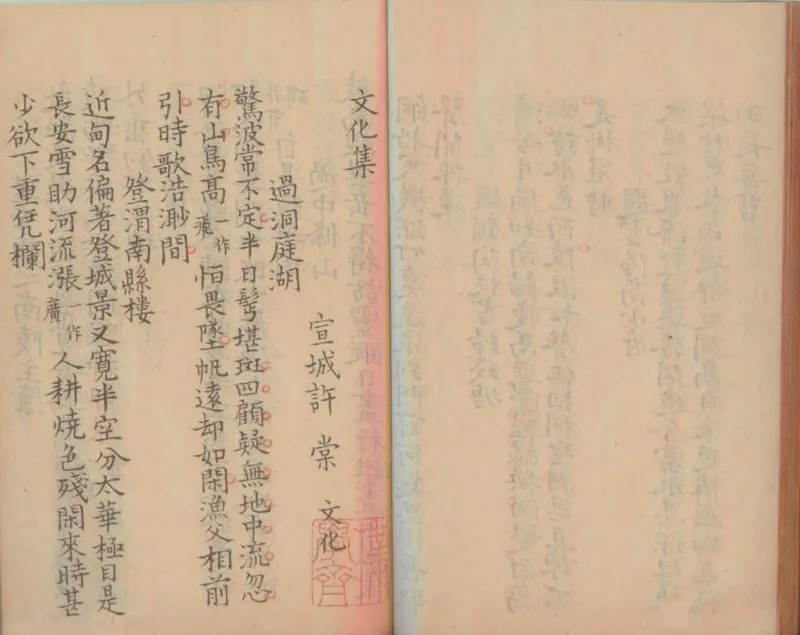 文化集
宣城許棠文化
過洞庭湖
驚波常不定半日鬂堪斑四顧疑無地中流忽
有山鳥髙一作飛恒畏墜帆遠却如閑漁父相前
引時歌浩渺間
登渭南縣樓
近甸名偏著登城景又寬半空分太華極目是
長安雪助河流漲一作廣人耕燒色殘閑來時甚
少欲下重凭欄